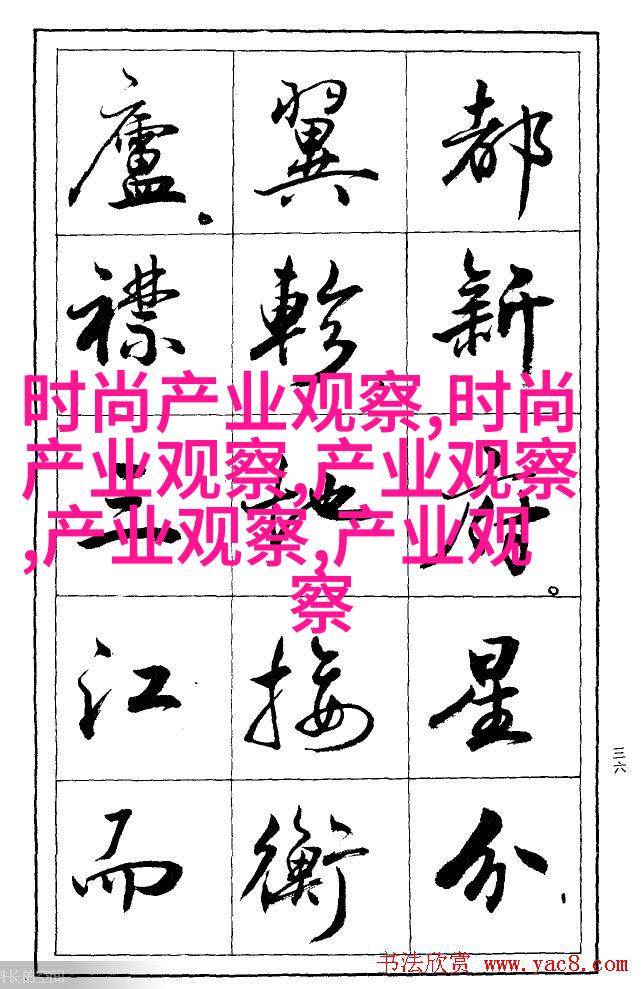 都新府。星分
翼軫地接衡
廬。襟三江而
时尚产业观察,时尚
产业观察,产业观察
,产业观察,产业观
察
三六
书法欣赏 www.yac8.com
长的空间